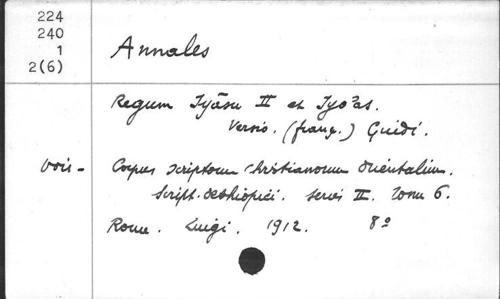 224
240
1
2(6)
Annales
Regum Iyāsu II et Iyo'as.
Versio. (franç.) Guidi.
Vois - Corpus scriptorum christianorum orientalium.
Script. aethiopici. series II. tomu 6.
Rome. Luigi. 1912. 8°